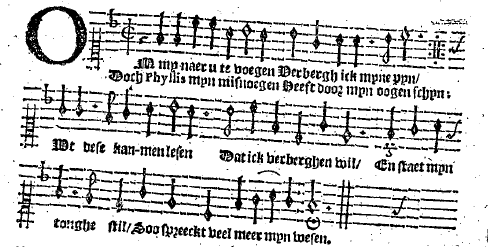 OM my naer u te voegen Verbergh ick myne pyn/
Doch Phyllis myn misnoegen Heeft door myn oogen schyn:
Wt dese kan-men lesen Dat ick verberghen wil/ En staet myn
tonghe stil/ Soo spreeckt veel meer myn wesen.